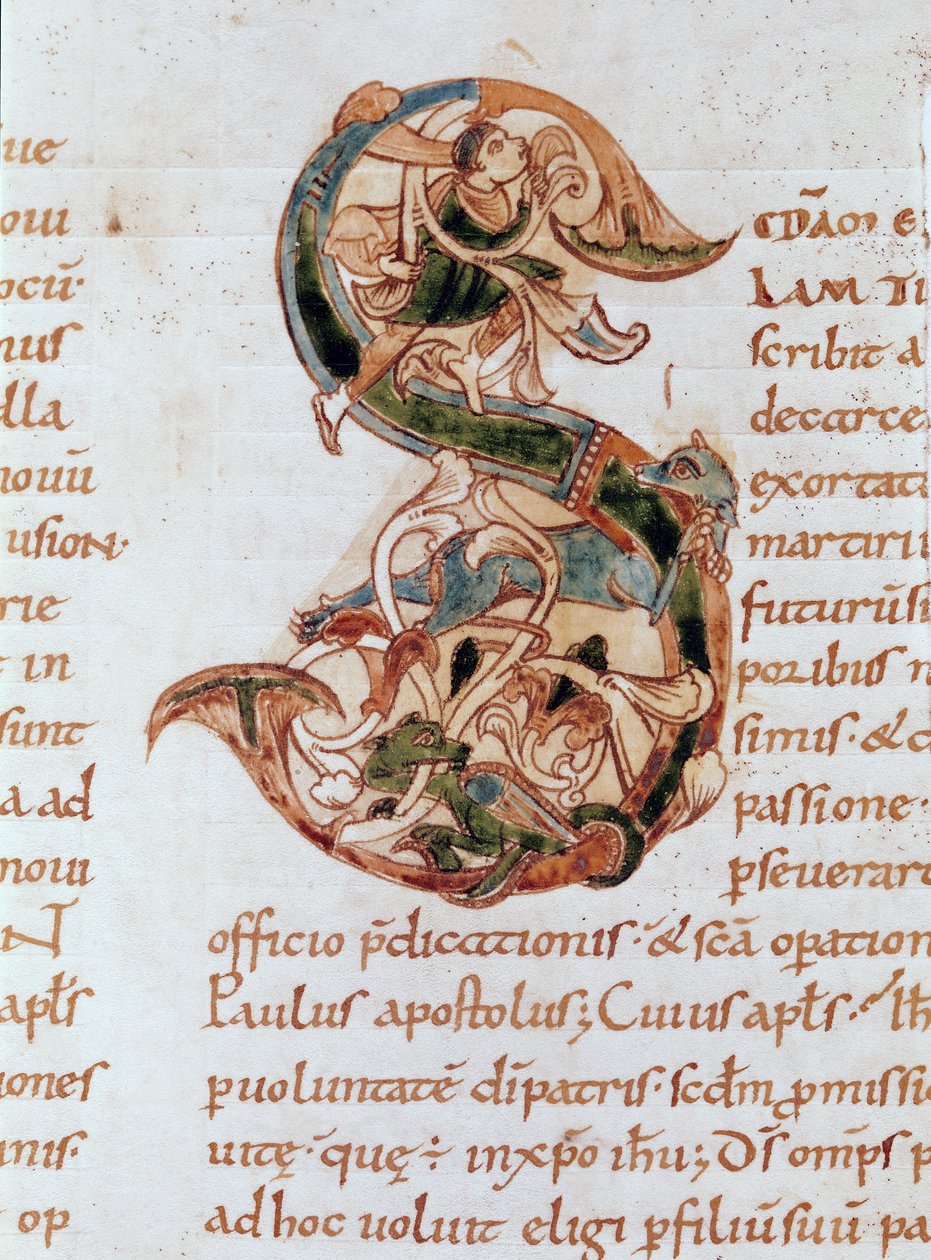 ue
oui
ocū·
nus
lla
nouū
usioN·
rie
in
sunt
a ad
noui
N
apl̄s
iones
nis·
op
S
CDĀM E
LAM TI
scribit a
decarce
exortat
martiri
futurū si
poribus n
simis· & c
passione·
ꝑseuerar
officio p̄dicationis· & scā oꝑation
Paulus apostolus; Cuius apl̄s· ih̄
ꝑ uoluntatē dī patris· scd̄m ꝓmissi
uitę· quę· in xp̄o ih̄u; Dī om̄ps p
ad hoc uoluit eligi ꝑ filiū suū pa